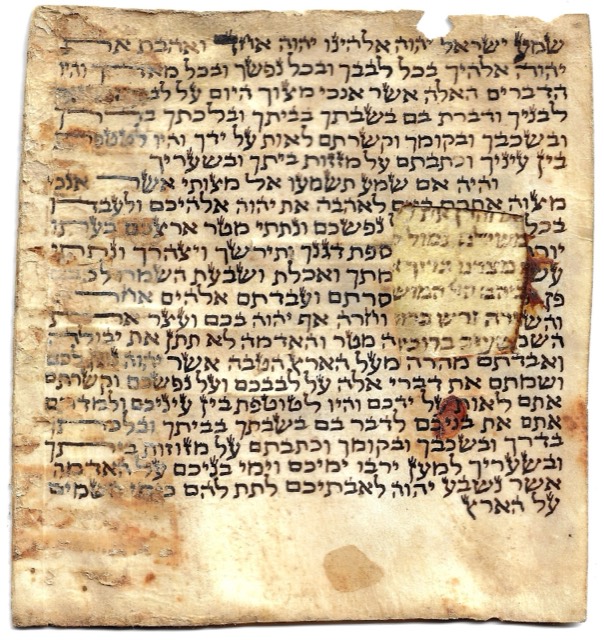 שמע ישראל יהוה אלהינו יהוה אחד ואהבת את
יהוה אלהיך בכל לבבך ובכל נפשך ובכל מאדך והיו
הדברים האלה אשר אנכי מצוך היום על
לבניך ודברת בם בשבתך בביתך ובלכתך
ובשכבך ובקומך וקשרתם לאות על ידך והיו לטטפת
בין עיניך וכתבתם על מזזות ביתך ובשעריך
והיה אם שמע תשמעו אל מצותי אשר אנכי
מצוה אתכם היום לאהבה את יהוה אלהיכם ולעבדו
בכל נפשכם ונתתי מטר ארצכם בעתו
ספת דגנך ותירשך ויצהרך ונתתי
מתך ואכלת ושבעת השמרו לכם
סרתם ועבדתם אלהים אחרים
וחרה אף יהוה בכם ועצר את
מטר והאדמה לא תתן את יבולה
ואבדתם מהרה מעל הארץ הטבה אשר יהוה נתן לכם
ושמתם את דברי אלה על לבבכם ועל נפשכם וקשרתם
אתם לאות על ידכם והיו לטוטפת בין עיניכם ולמדתם
אתם את בניכם לדבר בם בשבתך בביתך ובלכתך
בדרך ובשכבך ובקומך וכתבתם על מזוזות ביתך
ובשעריך למען ירבו ימיכם וימי בניכם על האדמה
אשר נשבע יהוה לאבתיכם לתת להם כימי השמים
על הארץ